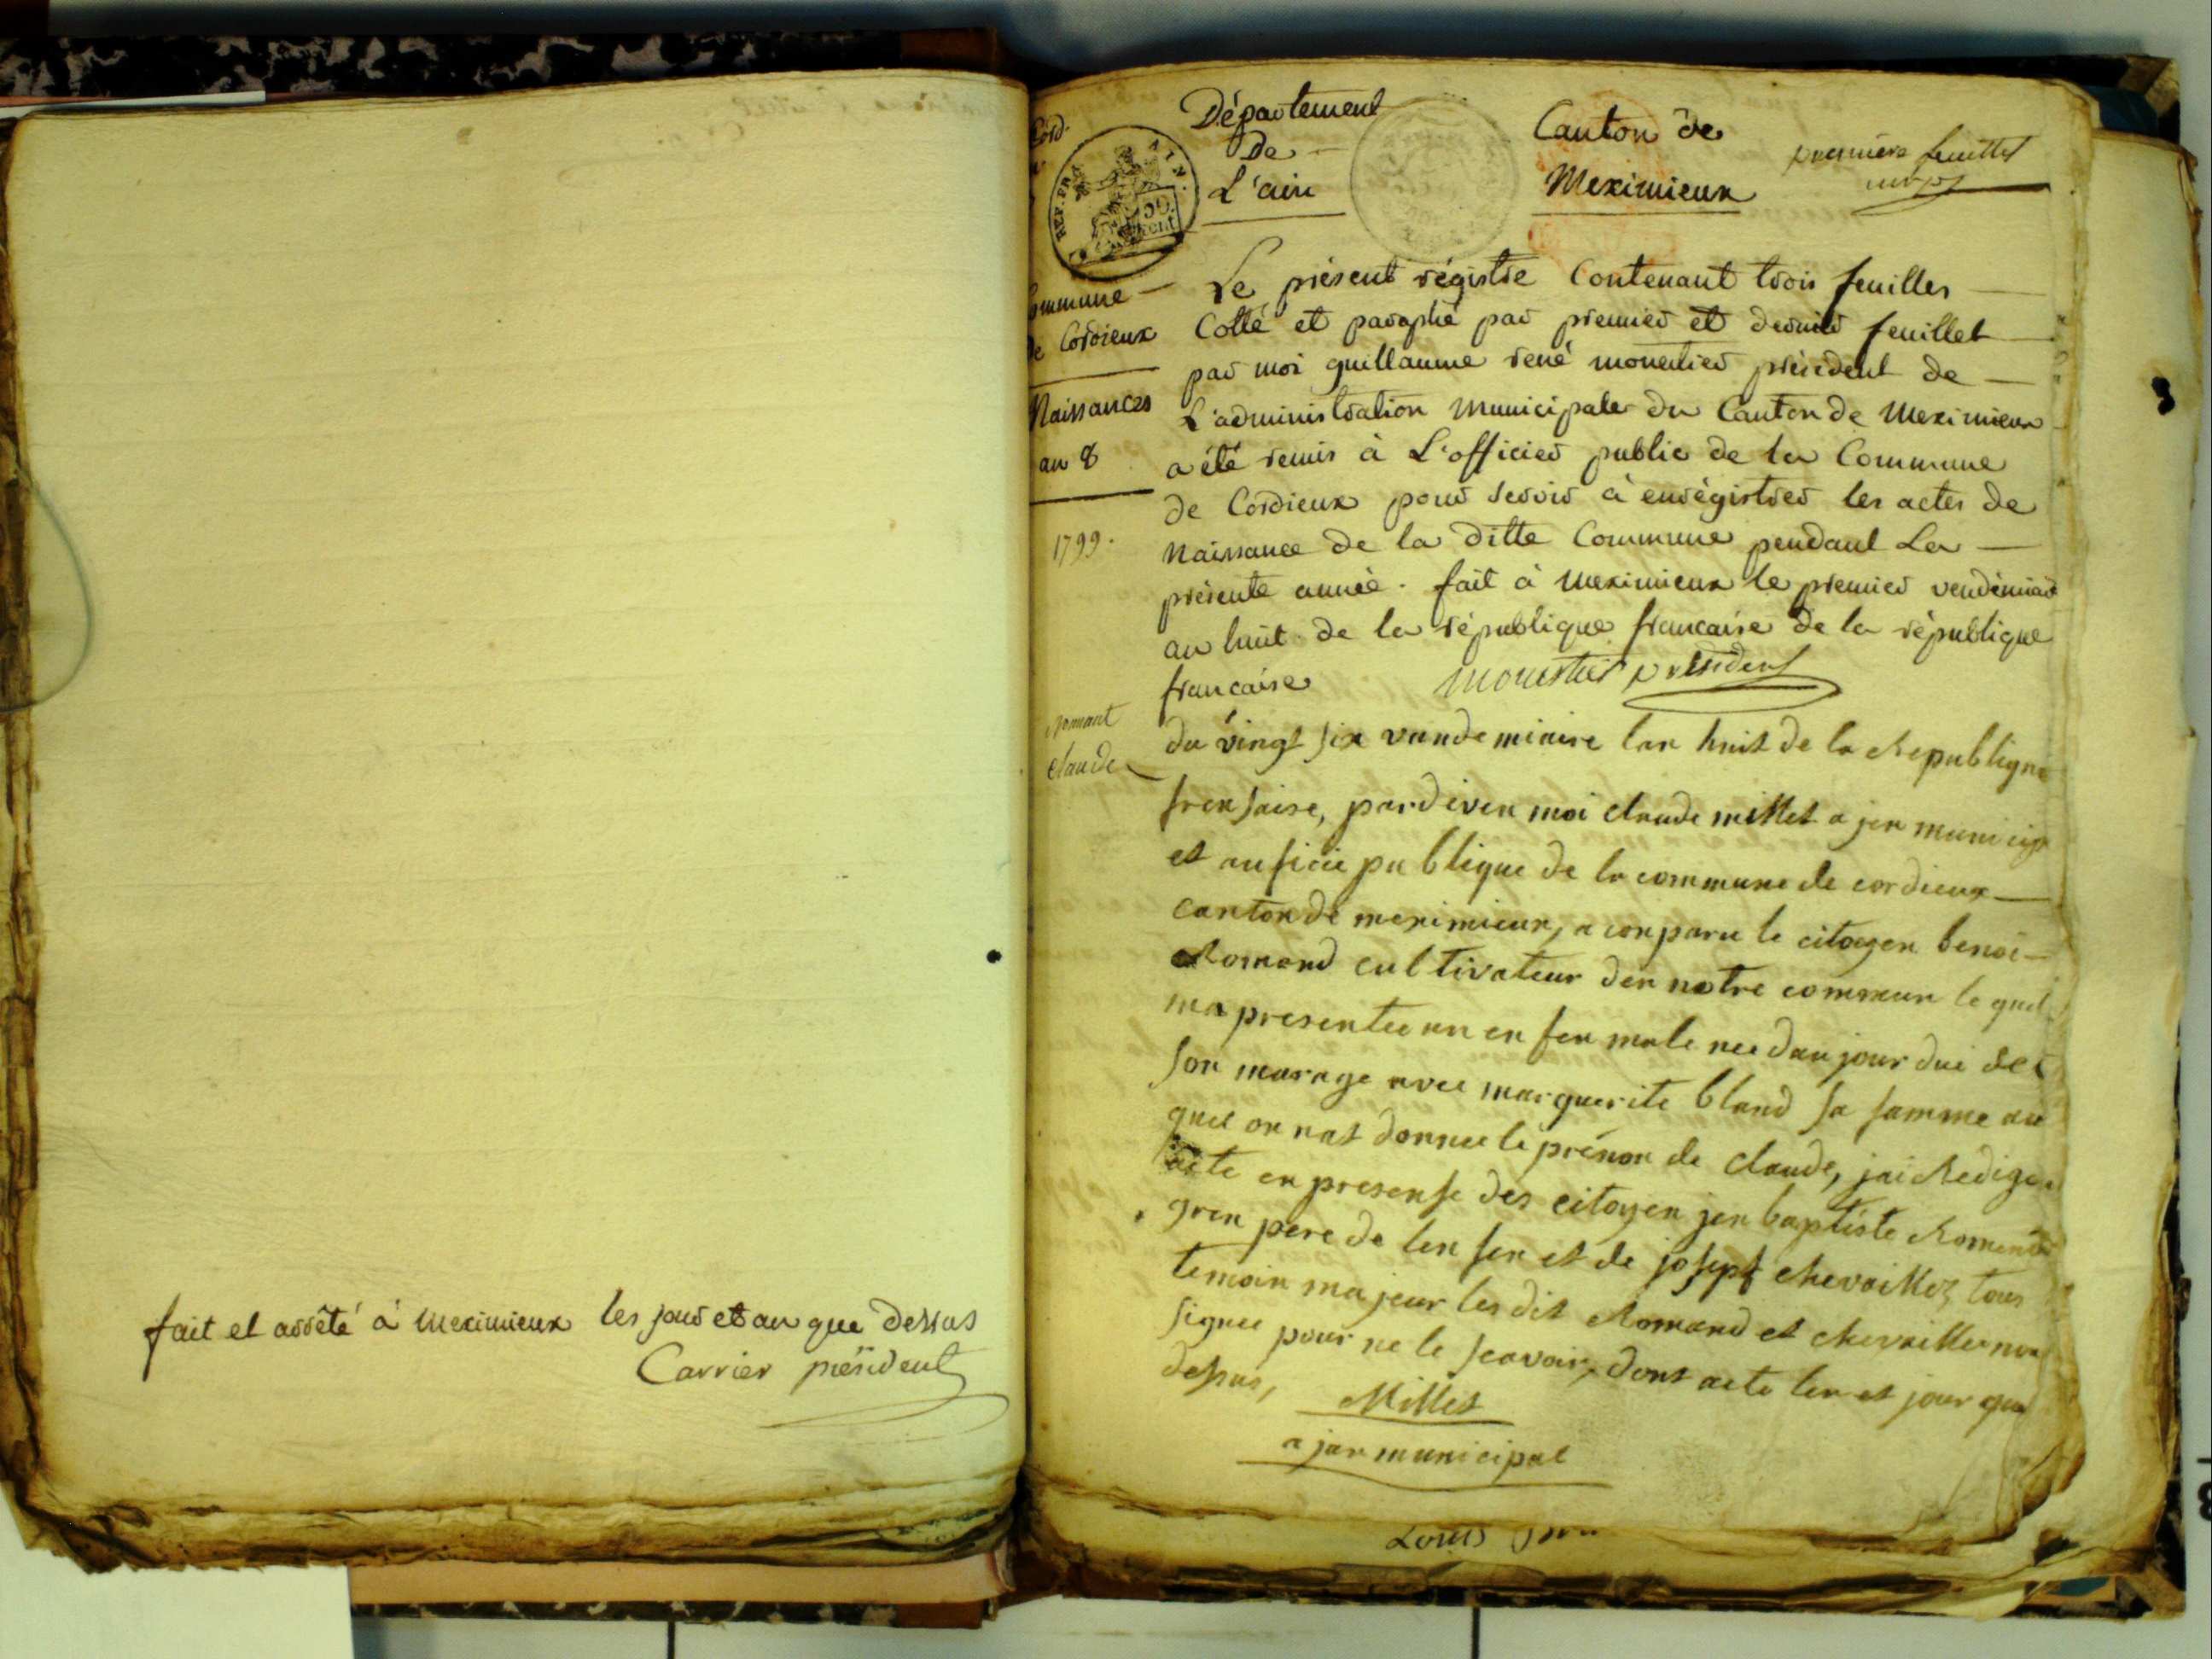 fait et arrêté à meximieux les jour et an que dessus
Carrier président
Cord.
REP. FRA. AIN.
50 cent.
Département
De
L'ain
Canton de
Meximieux
première feuillet
Commune
de Cordieux
Naissances
an 8
1799.
Le présent régistre Contenant trois feuilles
Cotté et paraphé par premier et dernier feuillet
par moi guillaume rené monestier président de
L'administration Municipale du Canton de Meximieux
a été remis à L'officier public de la Commune
de Cordieux pour servir à enrégistrer les actes de
Naissance de la ditte Commune pendant La
présente année. fait à Meximieux le premier vendémiaire
an huit de la république francaise de la république
francaise
monestier président
romant
claude
du vingt six vandemiaire lan huit de la Republique
fransaise, pardiven moi claude millet a jen municip
et auficie publique de la commune de cordieux
canton de meximieux, a conparu le citoyen benoi
Romand cultivateur den notre commun le quel
ma presentee un en fen male nee daujourdui de
son marage avec marguerite bland sa famme au
quel on nat donnee le prénon de claude, jai Redige
acte en presense des citoyen jen baptiste Romand
gren pere de len fen et de joseph chevaillez tous
temoin majeur les dit Romand et chevailler non
signee pour ne le scavoir, dont acte len et jour que
dessus,
Millet
a jan municipal
Louis